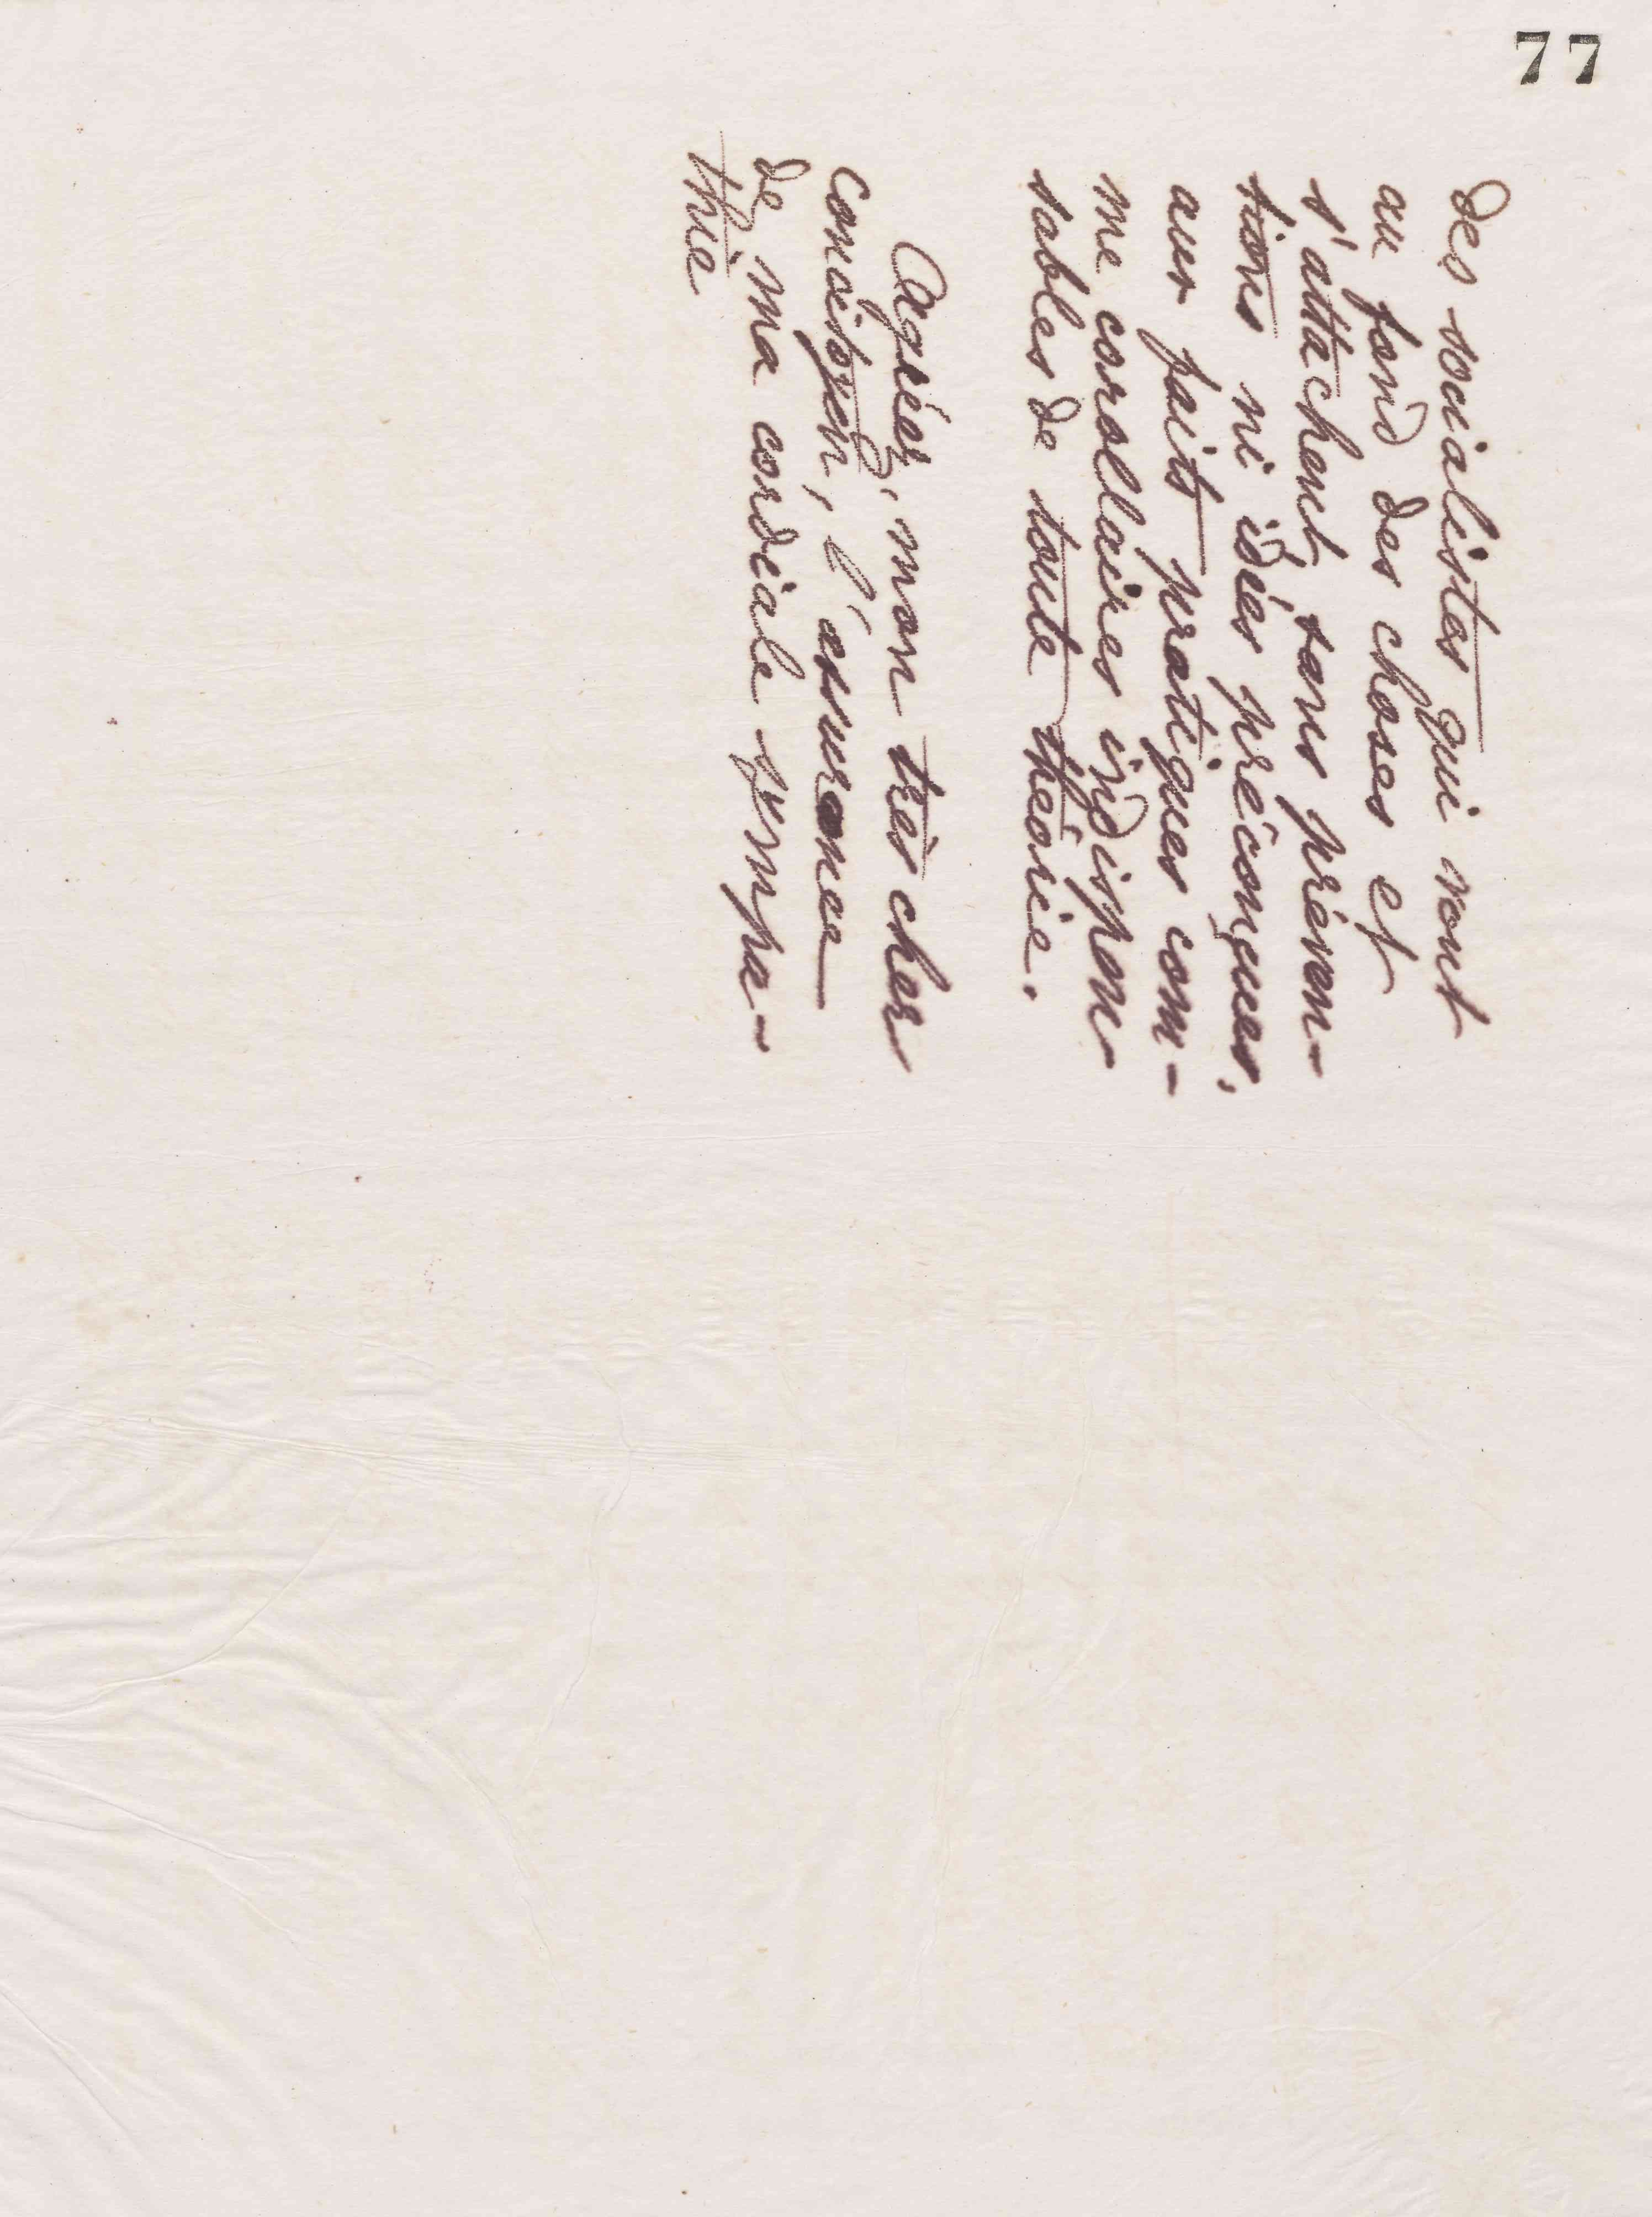 77
des socialistes qui vont
au fond des choses et
s'attachent sans préven-
tions ni idées préconçues,
aux faits pratiques com-
me corollaires indispen-
sables de toute théorie.
Agréez, mon très cher
concitoyen, l'assurance
de ma cordiale sympa-
thie